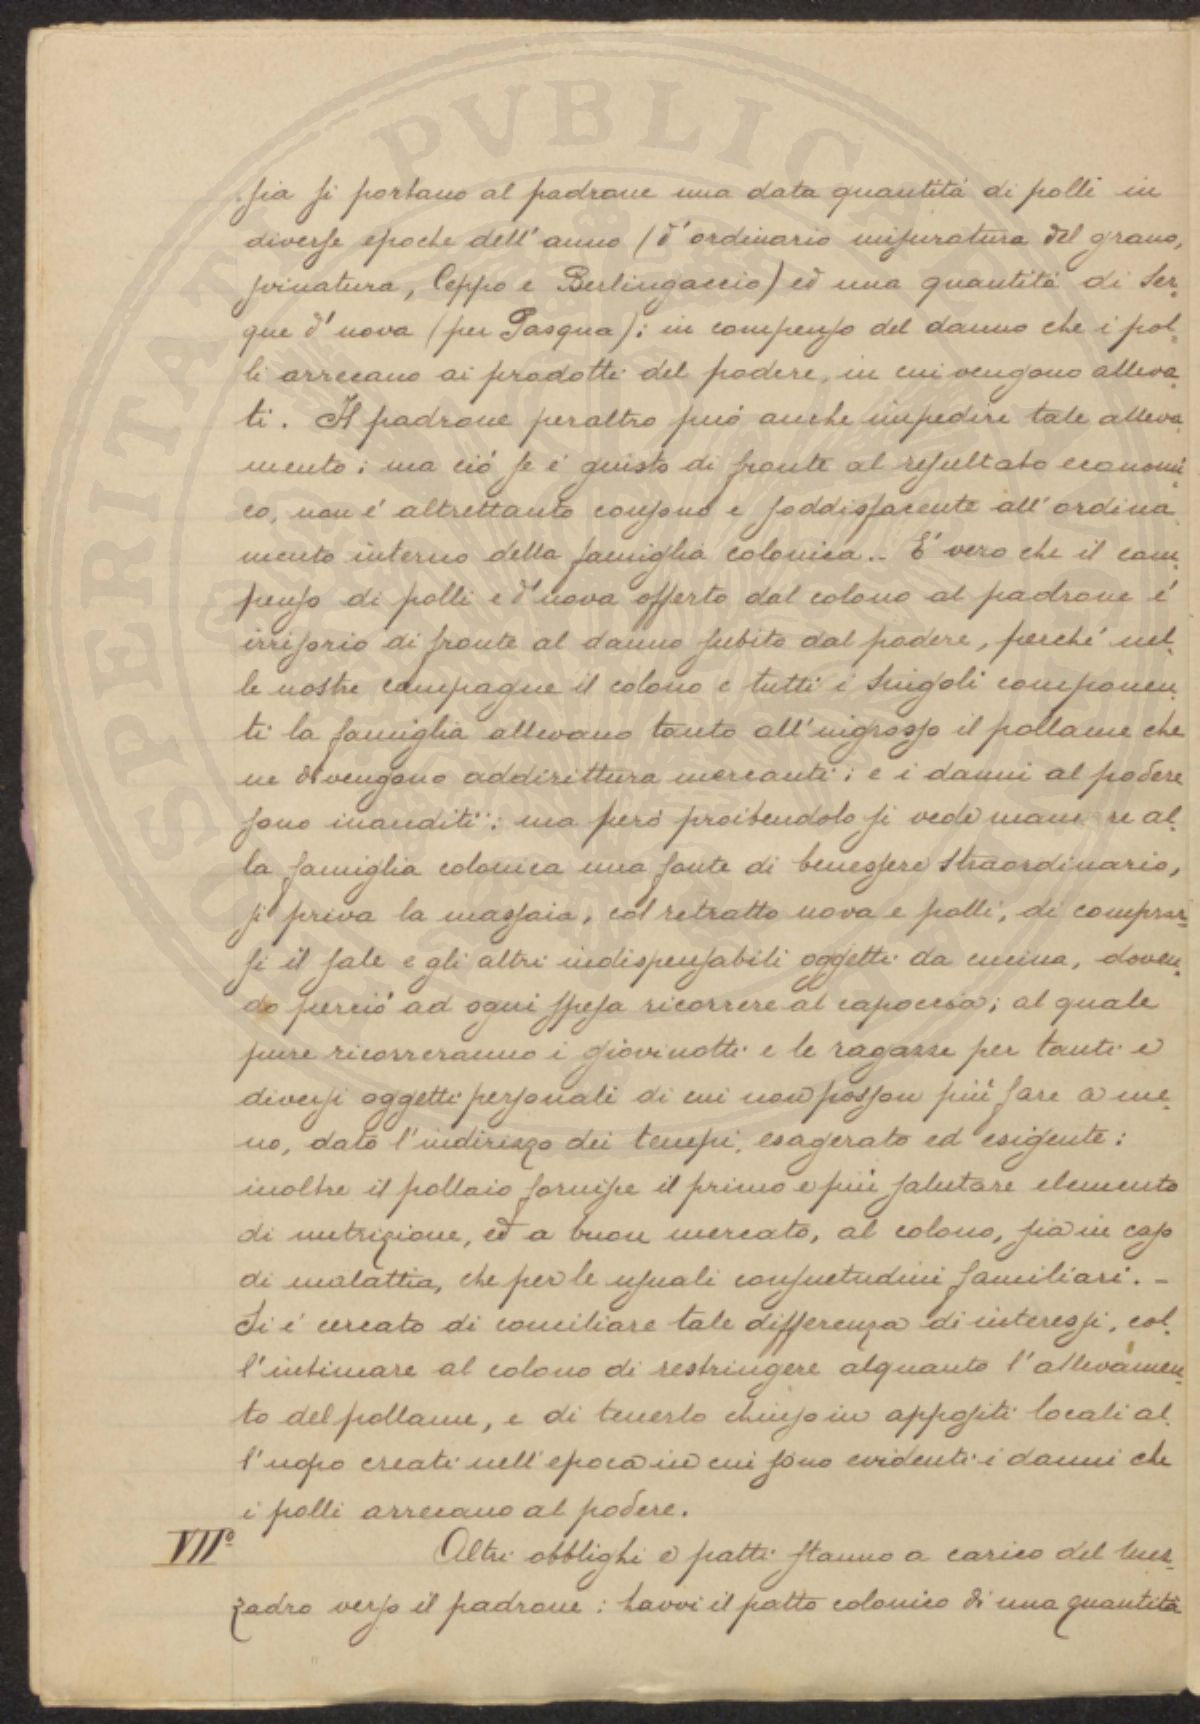 sia si portano al padrone una data quantità di polli in
diverse epoche dell'anno (d'ordinario misuratura del grano,
svinatura, Ceppo e Berlingaccio) ed una quantità di Ser-
que d'uova (per Pasqua); in compenso del danno che i pol-
li arrecano ai prodotti del podere, in cui vengono alleva-
ti. Il padrone peraltro può anche impedire tale alleva-
mento; ma ciò se è giusto di fronte al resultato economi-
co, non è altrettanto consono e soddisfacente all'ordina-
mento interno della famiglia colonica.. E' vero che il com-
penso di polli e d'uova offerto dal colono al padrone è
irrisorio di fronte al danno subito dal podere, perchè nel-
le nostre campagne il colono e tutti i singoli componen-
ti la famiglia allevano tanto all'ingrosso il pollame che
ne divengono addirittura mercanti; e i danni al podere
sono inauditi; ma però proibendolo si vede man re al-
la famiglia colonica una fonte di benessere straordinario,
si priva la massaia, col retratto uova e polli, di comprar-
si il sale e gli altri indispensabili oggetti da cucina, doven-
do perciò ad ogni spesa ricorrere al capoccia; al quale
pure ricorreranno i giovinotti e le ragazze per tanti e
diversi oggetti personali di cui non posson più fare a me-
no, dato l'indirizzo dei tempi, esagerato ed esigente:
inoltre il pollaio fornisce il primo e più salutare elemento
di nutrizione, ed a buon mercato, al colono, sia in caso
di malattia, che per le usuali consuetudini familiari. -
Si è cercato di conciliare tale differenza di interessi, col-
l'intimare al colono di restringere alquanto l'allevamen-
to del pollame, e di tenerlo chiuso in appositi locali al-
l'uopo creati nell'epoca in cui sono evidenti i danni che
i polli arrecano al podere.
VII° Altri obblighi e patti stanno a carico del Mez-
zadro verso il padrone: havvi il patto colonico di una quantità
PVBLICAE
SPERITATI